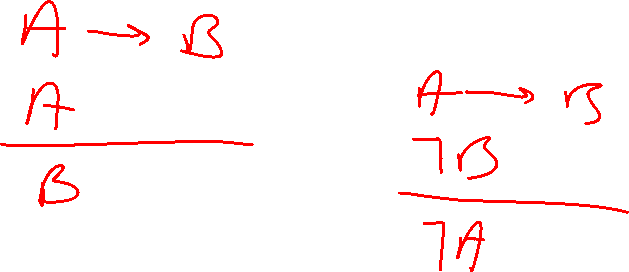 A → B
A
B
A → B
¬B
¬A